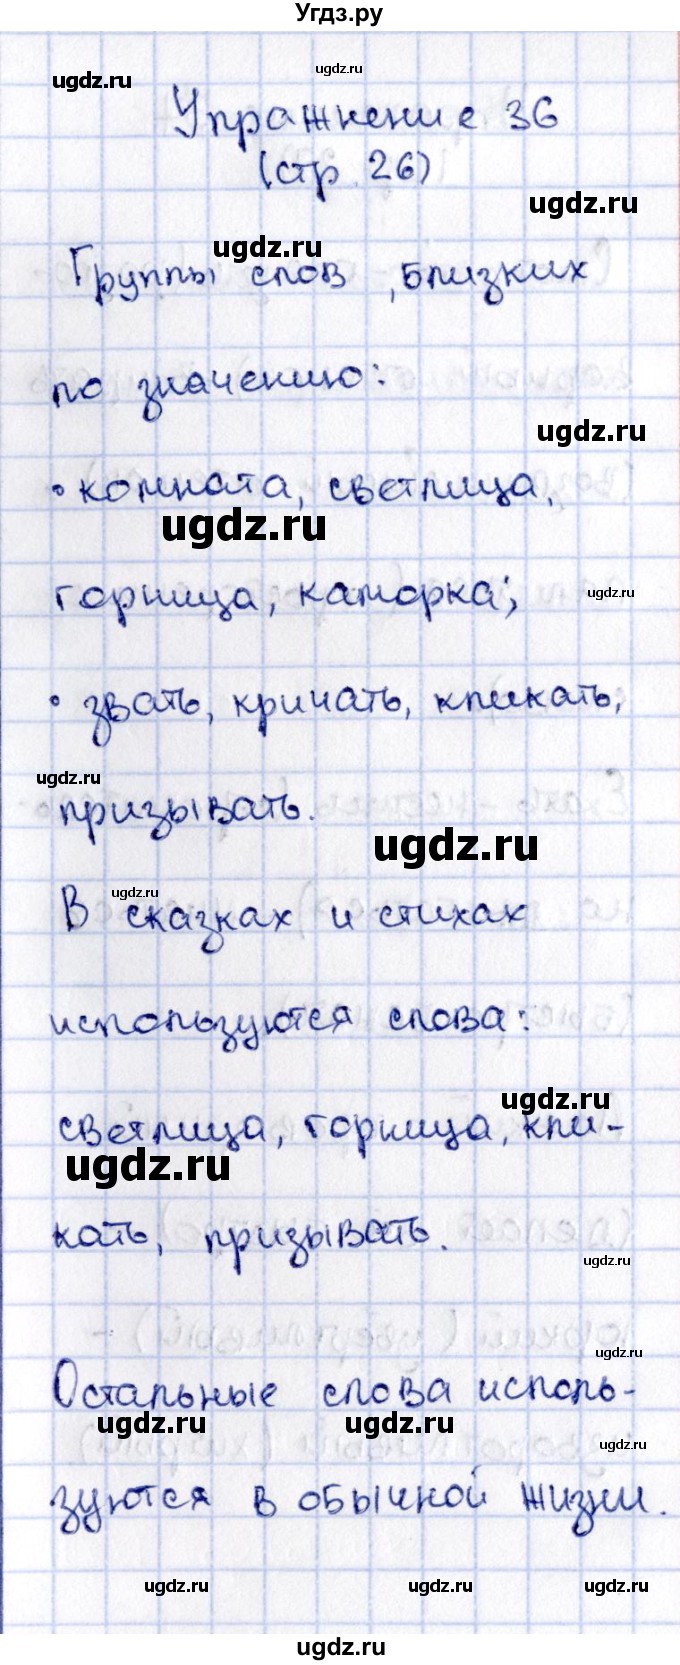 Угдз.ру
ugdz.ru
ugdz.ru
Упражнение 36
(стр. 26)
ugdz.ru
ugdz.ru
Группы слов, близких
по значению:
ugdz.ru
• комната, светлица,
ugdz.ru
горница, каморка;
ugdz.ru
• звать, кричать, кликать,
ugdz.ru
призывать.
ugdz.ru
ugdz.ru
В сказках и стихах
используются слова:
ugdz.ru
светлица, горница, кли-
ugdz.ru
кать, призывать.
ugdz.ru
ugdz.ru
Остальные слова исполь-
ugdz.ru
ugdz.ru
ugdz.ru
зуются в обычной жизни.
ugdz.ru
ugdz.ru
ugdz.ru
ugdz.ru